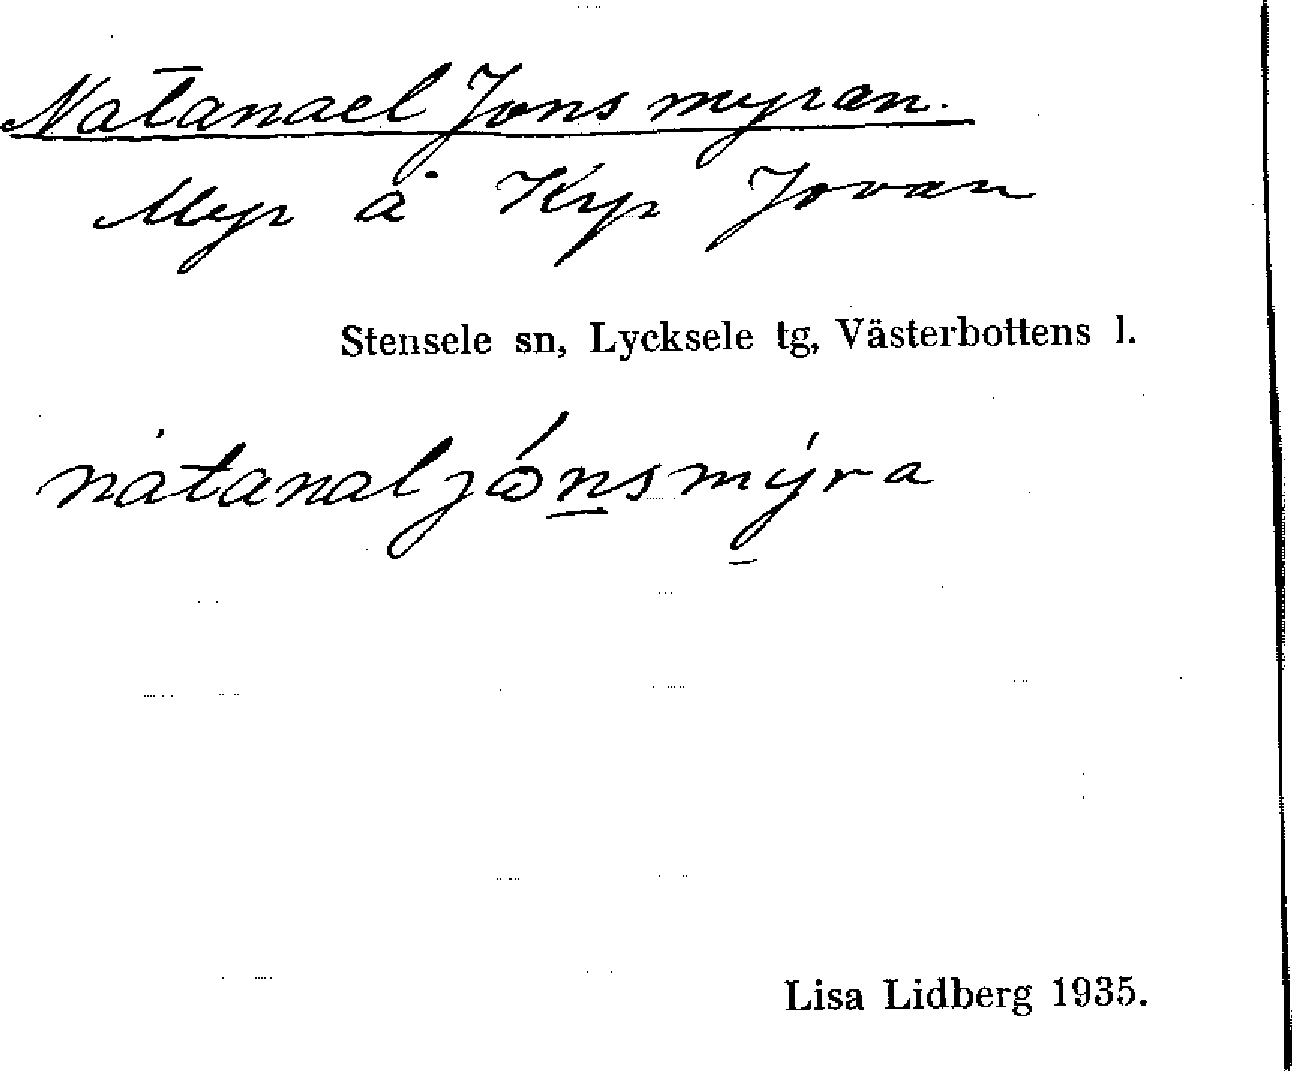 Natanael Jonsmyran.
Myr å Kyp Jovan
Stensele sn, Lycksele tg, Västerbottens l.
nátanaljónsmýra
Lisa Lidberg 1935.